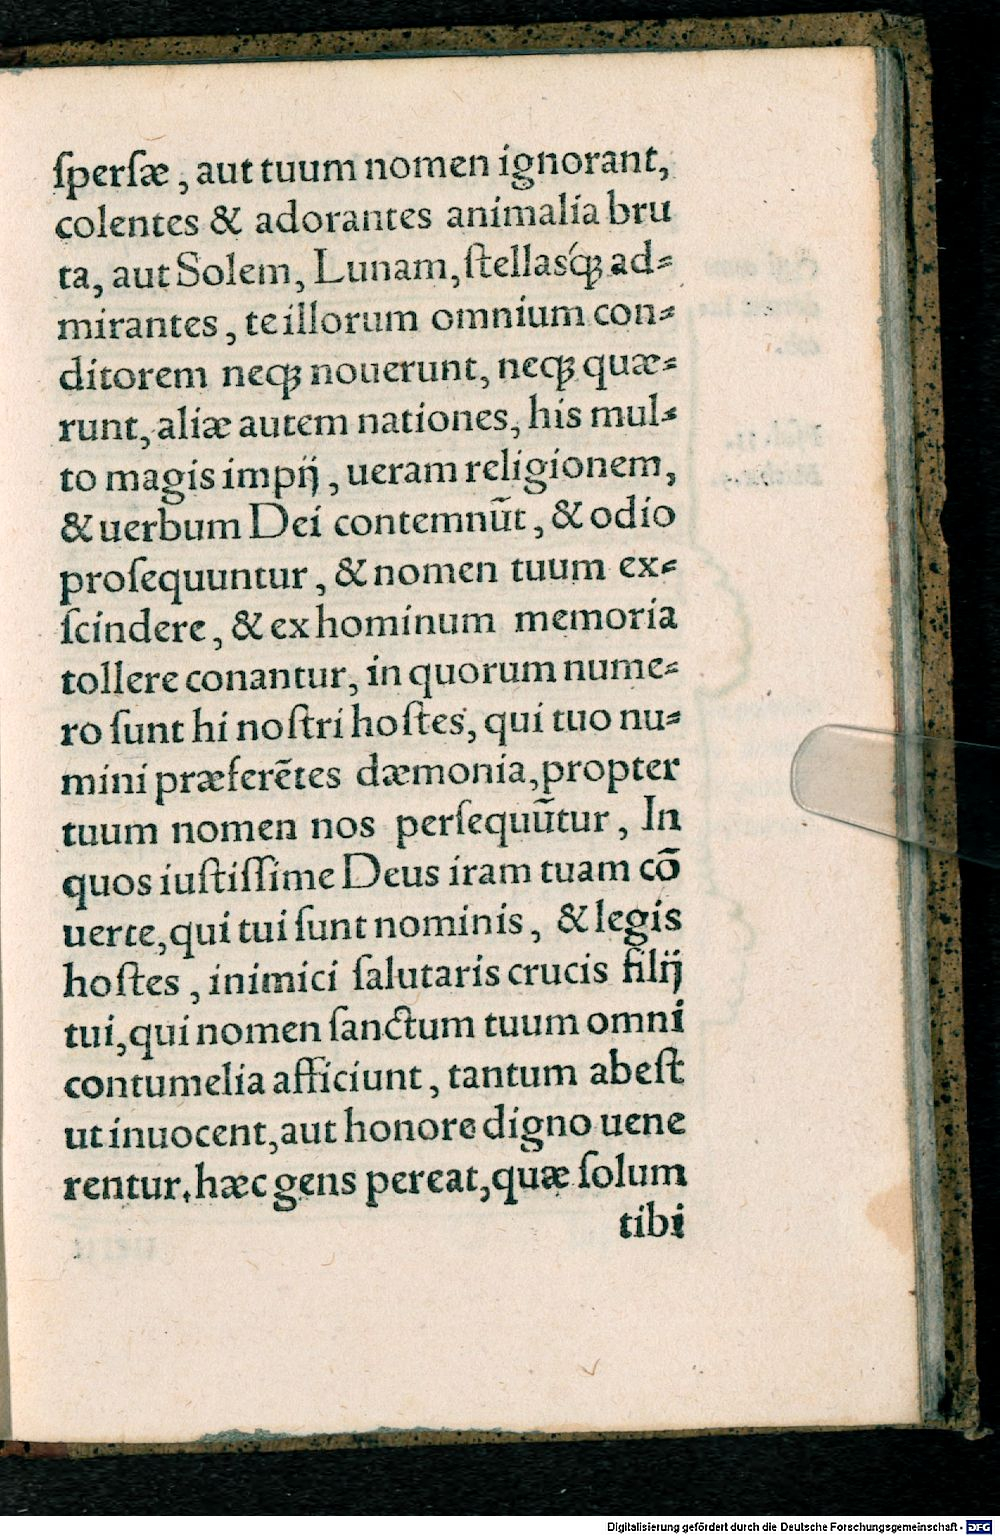 ſperſæ, aut tuum nomen ignorant,
colentes & adorantes animalia bru
ta, aut Solem, Lunam, ſtellasq́ꝫ ad⸗
mirantes, te illorum omnium con⸗
ditorem neqꝫ nouerunt, neqꝫ quæ⸗
runt, aliæ autem nationes, his mul⸗
to magis impij, ueram religionem,
& uerbum Dei contemnũt, & odio
proſequuntur, & nomen tuum ex⸗
ſcindere, & ex hominum memoria
tollere conantur, in quorum nume⸗
ro ſunt hi noſtri hoſtes, qui tuo nu⸗
mini præferẽtes dæmonia, propter
tuum nomen nos perſequũtur, In
quos iuſtiſſime Deus iram tuam cõ
uerte, qui tui ſunt nominis, & legis
hoſtes, inimici ſalutaris crucis filij
tui, qui nomen ſanctum tuum omni
contumelia afficiunt, tantum abeſt
ut inuocent, aut honore digno uene
rentur. hæc gens pereat, quæ ſolum
tibi
Digitalisierung gefördert durch die Deutsche Forschungsgemeinschaft - DFG